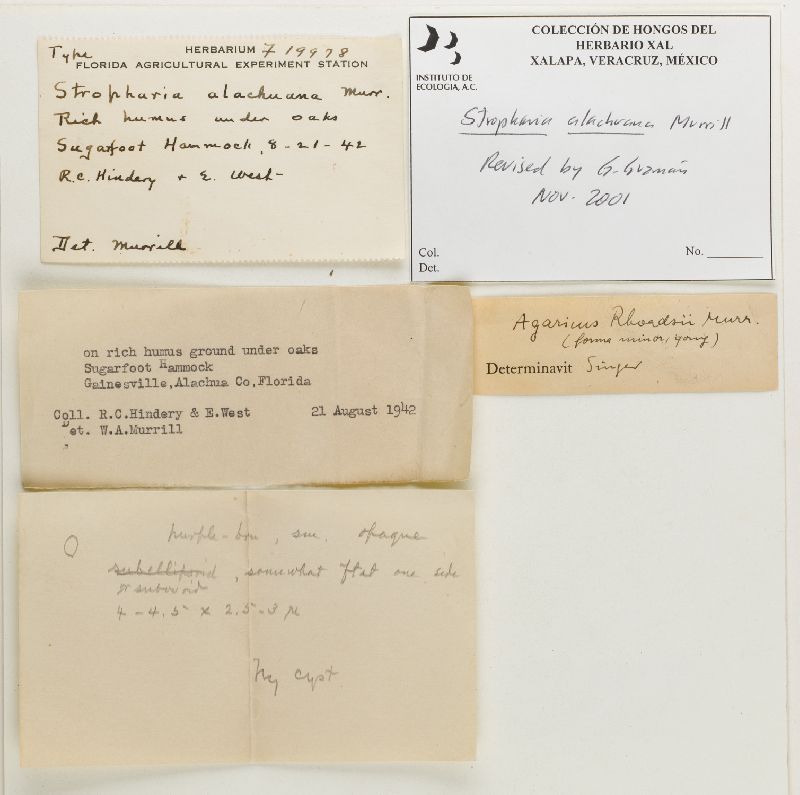 Type HERBARIUM F 19978
FLORIDA AGRICULTURAL EXPERIMENT STATION
Stropharia alachuana Murr.
Rich humus under oaks
Sugarfoot Hammock, 8-21-42
R.C. Hindery + E. West
Det. Murrill
COLECCIÓN DE HONGOS DEL
HERBARIO XAL
XALAPA, VERACRUZ, MÉXICO
INSTITUTO DE
ECOLOGIA, A.C.
Stropharia alachuana Murrill
Revised by G. Guzmán
Nov. 2001
Col.
Det.
No.
on rich humus ground under oaks
Sugarfoot Hammock
Gainesville,Alachua Co,Florida
Coll. R.C.Hindery & E.West 21 August 1942
Det. W.A.Murrill
Agaricus Rhoadsii Murr.
(forma minor, young)
Determinavit Singer
purple-brn, sm, opaque
subellipsoid, somewhat flat one side
or subovoid
4-4.5 x 2.5-3 µ
No cyst.